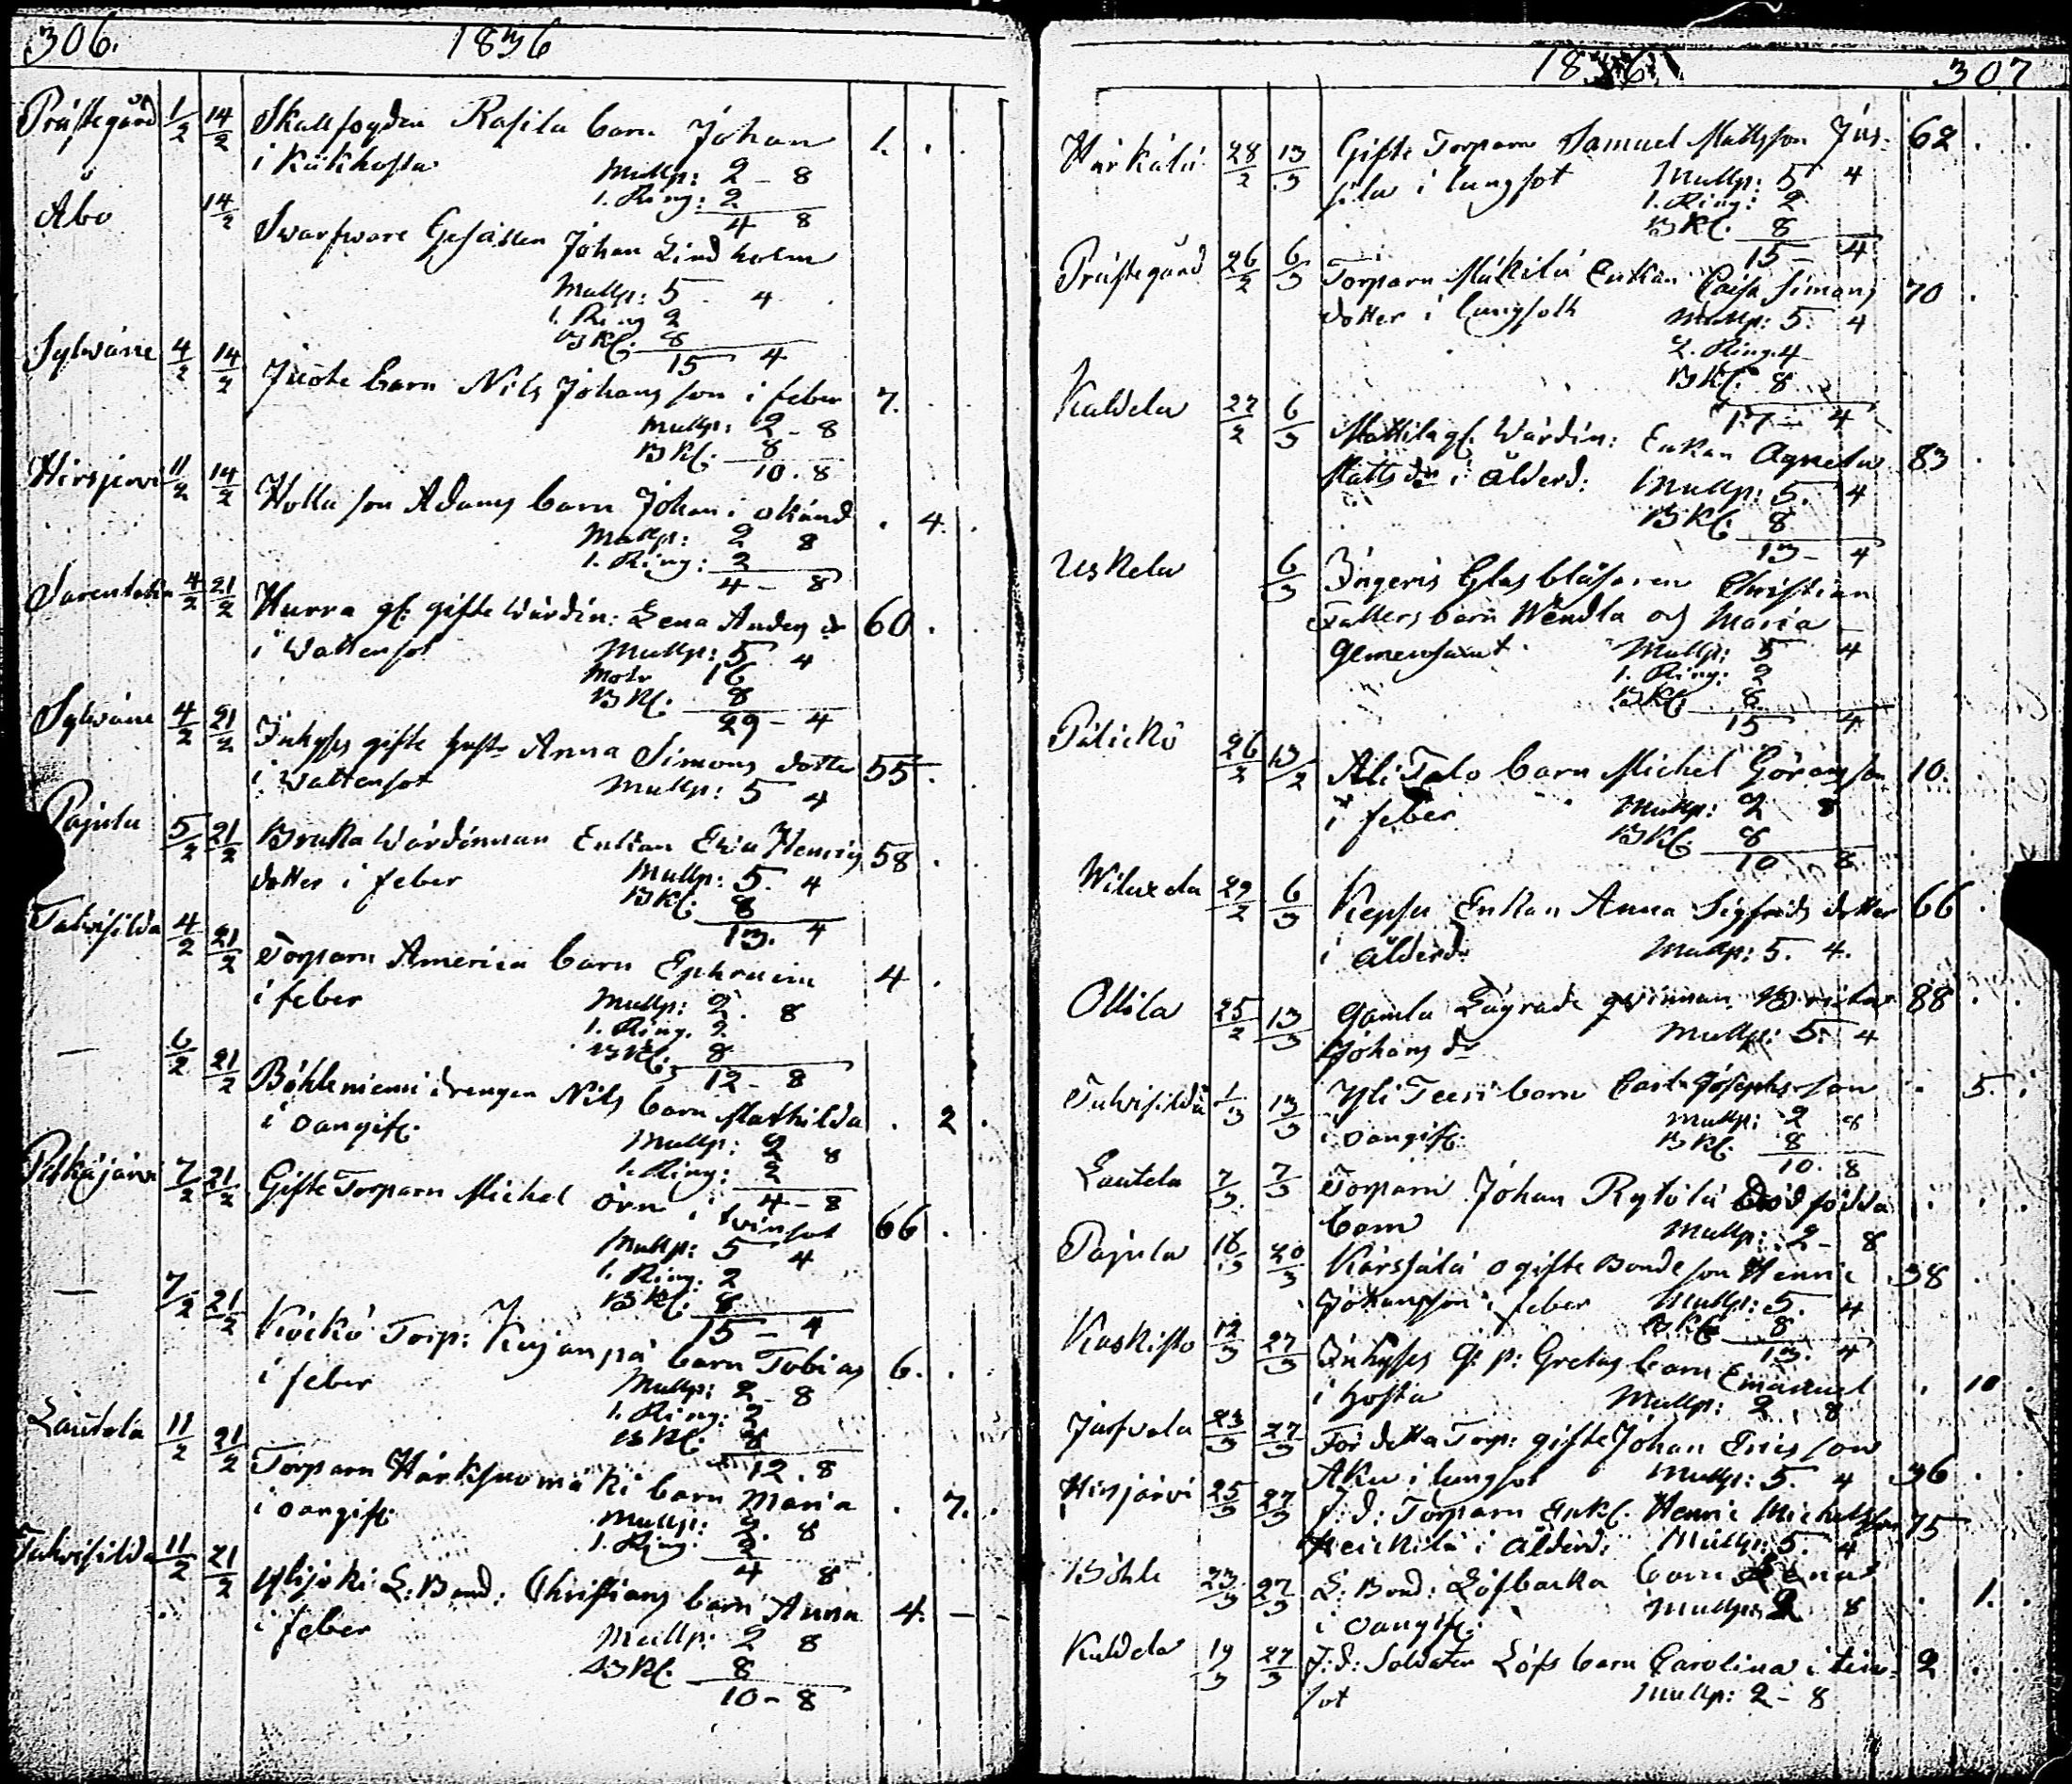 306.
1836
Prästegård 1/2 14/2 Skallfogden Rasila barn Johan 1.
i Kikhosta Mullp: 2 - 8
1. Ring: 2
4 8
Åbo 14/2 Svarfvare Gesällen Johan Lindholm
Mullp: 5 4
1. Ring 2
BKl. 8
15 4
Sylwäne 4/2 14/2 barn Nils Johansson i feber 7.
Mullp: 2 - 8
BKl. 8
10. 8
Hirsjerwi 11/2 14/2 son Adams barn Johan i okänd 4.
Mullp: 2 8
1. Ring: 2
4 - 8
4/2 21/2 Hurra gl. gifte Wärdin: Lena Anders dr 60
i Wattensot Mullp: 5 4
16
BKl. 8
29 - 4
Sylwäne 4/2 21/2 Inhyses gifte Anna Simons dotter 55
i Wattensot Mullp: 5 4
Pajula 5/2 21/2 Wärdinnan Enkan Ewa Henrics 58
dotter i feber Mullp: 5. 4
BKl. 8
13. 4
Talwisilda 4/2 21/2 Torparn America barn Ephraim 4
i feber Mullp: 2. 8
1. Ring. 2
BKl. 8
12 - 8
— 6/2 21/2 Böhleniemi drengen Nils barn Mathilda 2
i oangifl. Mullp: 2 8
1. Ring: 2
4 - 8
Pitkäjärwi 7/2 21/2 Gifte Torparn Michel Örn i twinsot 66
Mullp: 5 4
1. Ring. 2
BKl. 8
15 - 4
— 7/2 21/2 Köckö Torp: Kujanpä barn Tobias 6.
i feber Mullp: 2 - 8
1. Ring: 2
BKl. 8
12. 8
Lautela 11/2 21/2 Torparn barn Maria 7.
i oangifl. Mullp: 2. 8
1. Ring. 2
4 8
Talwisilda 11/2 21/2 Ylijoki L: Bond: Christians barn Anna 4.
i feber Mullp: 2 8
BKl. 8
10 - 8
1836
307
Härkälä 28/2 13/3 Gifte Torparn Samuel Mattsson Jus- 62
sila i lungsot Mullp: 5 4
1. Ring: 2
BKl. 8
15 - 4
Prästegård 26/2 6/3 Torparn Mäkilä Enkan Caisa Simons 70
dotter i lungsott Mullp: 5: 4
2. Ring. 4
BKl. 8
17 - 4
Kaldela 27/2 6/3 Mattila gl. Wärdin: Enkan Agneta 83
Matts dr i Ålderd: Mullp: 5. 4
BKl. 8
13 - 4
Uskela 6/3 Ingeris Glasblåsaren Christian
barn Wendla och Maria
gemensamt Mullp: 5 4
1. Ring: 2
BKl. 8
15 4
26/2 13/2 Ali Talo barn Michel Göransson 10.
i feber Mullp: 2 8
BKl. 8
10 8
Wiluxela 29/2 6/3 Kepsu Enkan Anna Sigfrids dotter 66
i Ålderd. Mullp: 5. 4.
Ollila 25/2 13/3 Gamla qwinnan 88
Johans dr Mullp: 5: 4
Talwisilda 1/3 13/3 Yli Teeri barn Carl Josephsson 5.
i oangifl. Mullp: 2 8
BKl. 8
10. 8
Lautela 7/3 7/3 Torparn Johan Rytölä Död födda
barn Mullp: 2 - 8
Pajula 16/3 20/3 Kärssälä ogifte Bonde son Henric 38
Johansson i feber Mullp: 5. 4
BKl. 8
13. 4
Kaskisto 12/3 27/3 Inhyses Q: p: Gretas barn Emanuel
i hosta Mullp: 2. 8 10
23/3 27/3 För detta Torp: gifte Johan Ericsson
Aku i lungsot Mullp: 5. 4 36
Hirsjärvi 25/3 27/3 f: d: Torparn Enkl. Henric Michelsson 75
Heickilä i Ålderd: Mullp: 5. 4
Böhle 23/3 27/3 L: Bond: Löfbacka barn
i oangifl. Mullp: 2 8 1.
Kaldela 19/3 27/3 f: d: Soldaten Löfs barn Carolina i twin- 2
sot Mullp: 2 - 8